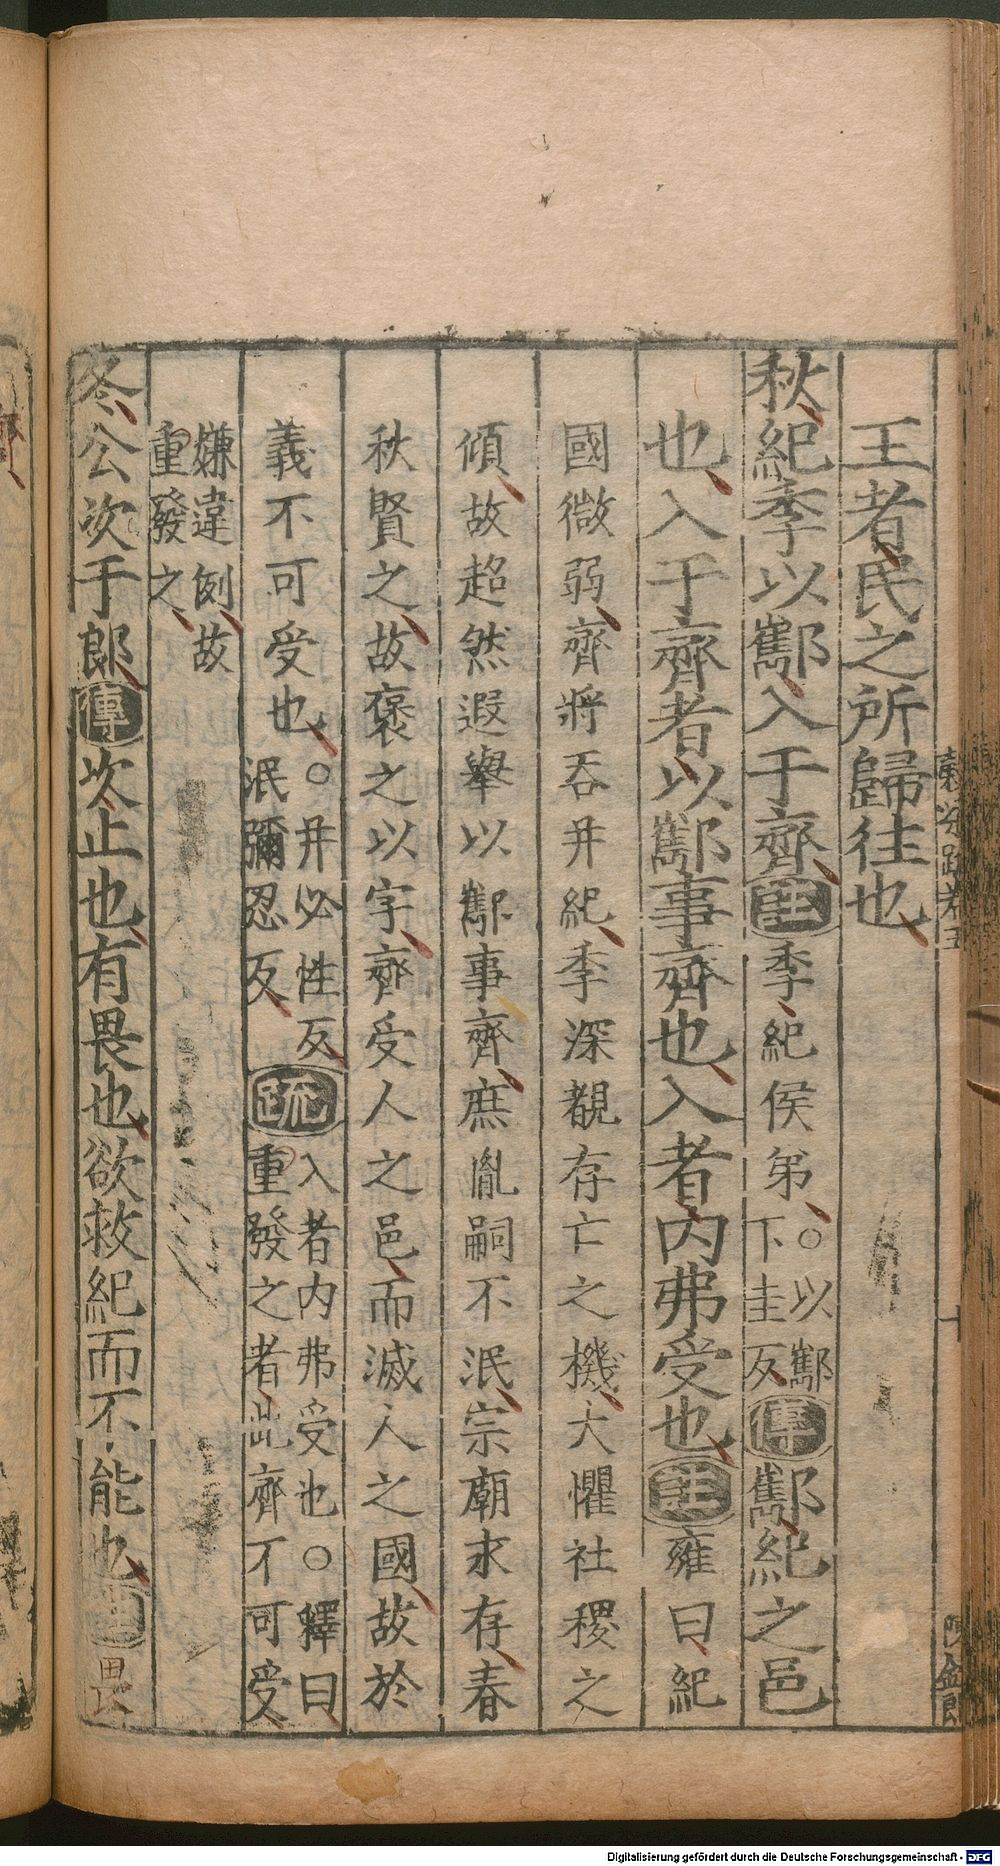 王者民之所歸往也
秋紀季以酅入于齊註季紀侯弟○以酅
下圭反傳酅紀之邑
也入于齊者以酅事齊也入者内弗受也註雍曰紀
國微弱齊將吞并紀季深覩存亡之機大懼社稷之
傾故超然遐舉以酅事齊庶胤嗣不泯宗廟永存春
秋賢之故褒之以字齊受人之邑而滅人之國故於
義不可受也○并必性反
泯彌忍反疏入者内弗受也○釋曰
重發之者此齊不可受
嫌違例故
重發之
冬公次于郎傳次止也有畏也欲救紀而不能也註畏
Digitalisierung gefördert durch die Deutsche Forschungsgemeinschaft - DFG